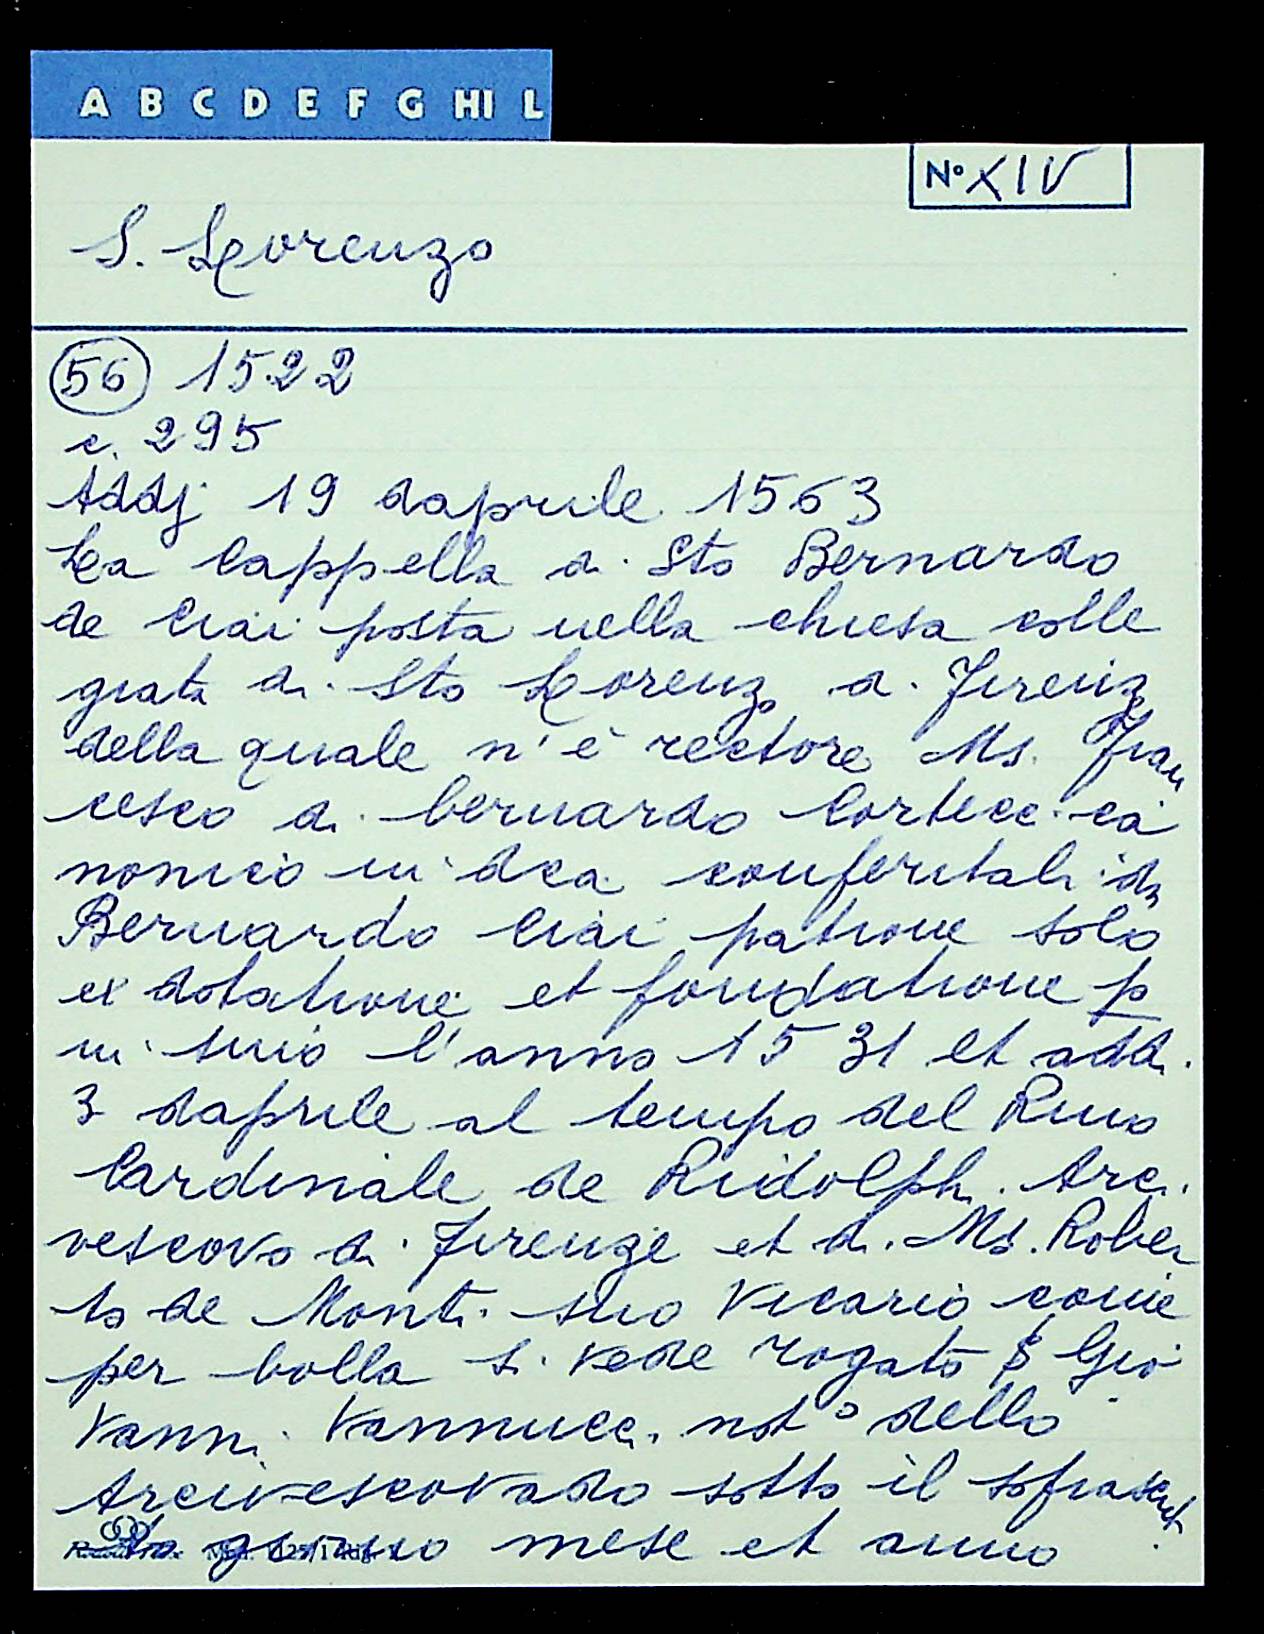 A B C D E F G HI L
N° XIV
S. Lorenzo
56 1522
c. 295
Addj 19 daprile 1563
La Cappella di Sto Bernardo
de Ciai posta nella chiesa colle
giata di Sto Lorenzo di Firenze
della quale n'è rectore Ms. Fran
cesco di bernardo Cortecci ca
nonico in dca conferitali da
Bernardo Ciai patrone solo
ex dotatione et fondatione p
in sino l'anno 1531 et addi
3 daprile al tempo del Rmo
Cardinale de Ridolphi Arci
vescovo di Firenze et di Ms. Rober
to de Monti suo Vicario come
per bolla si vede rogato Gio
vanni Vannucci not° dello
Arcivescovado sotto il sofrascrit
to giorno mese et anno